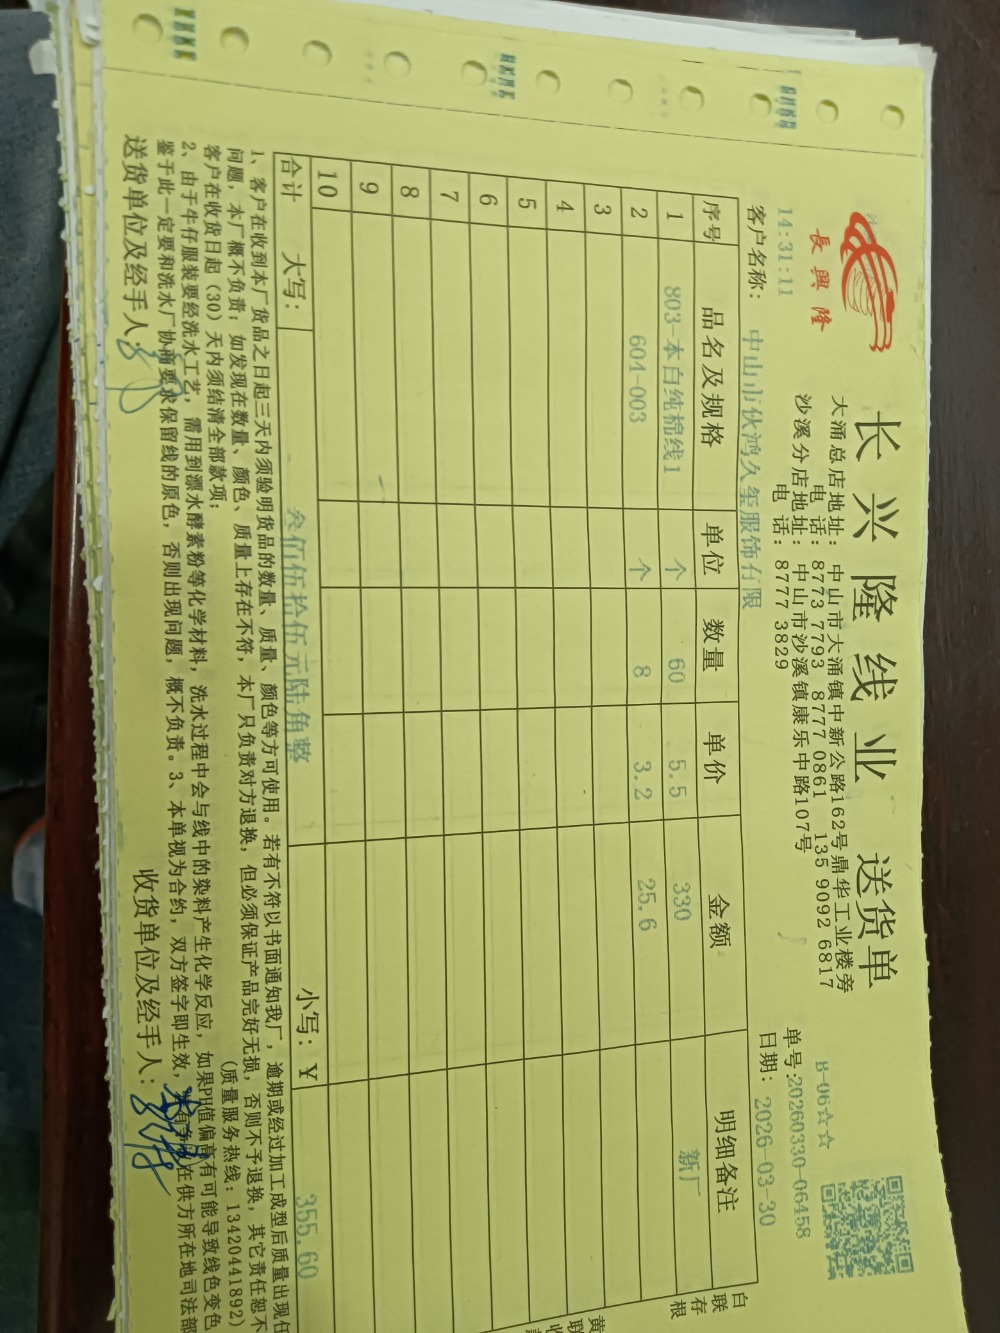 長興隆
长兴隆线业 送货单
大涌总店地址: 中山市大涌镇中新公路162号鼎华工业楼旁
电 话: 8773 7793 8777 0861 135 9092 6817
沙溪分店地址: 中山市沙溪镇康乐中路107号
电 话: 8777 3829
B-06☆☆
单号:20260330-06458
14:31:11
日期: 2026-03-30
客户名称: 中山市伙鸿久玺服饰有限
序号 品名及规格 单位 数量 单价 金额 明细备注
1 803-本白纯棉线1 个 60 5.5 330 新厂
2 604-003 个 8 3.2 25.6
3
4
5
6
7
8
9
10
合计 大写: 叁佰伍拾伍元陆角整 小写: ¥ 355.60
白联存根
黄联
1、客户在收到本厂货品之日起三天内须验明货品的数量、质量、颜色等方可使用。若有不符以书面通知我厂,逾期或经过加工成型后质量出现任
问题,本厂概不负责;如发现在数量、颜色、质量上存在不符,本厂只负责对方退换,但必须保证产品完好无损,否则不予退换,其它责任恕不
客户在收货日起(30)天内须结清全部款项; (质量服务热线: 13420441892)
2、由于牛仔服装要经洗水工艺,需用到漂水酵素粉等化学材料,洗水过程中会与线中的染料产生化学反应,如果PH值偏高有可能导致线色变色
鉴于此一定要和洗水厂协商要求保留线的原色,否则出现问题,概不负责。3、本单视为合约,双方签字即生效,在供方所在地司法部
送货单位及经手人: 收货单位及经手人: